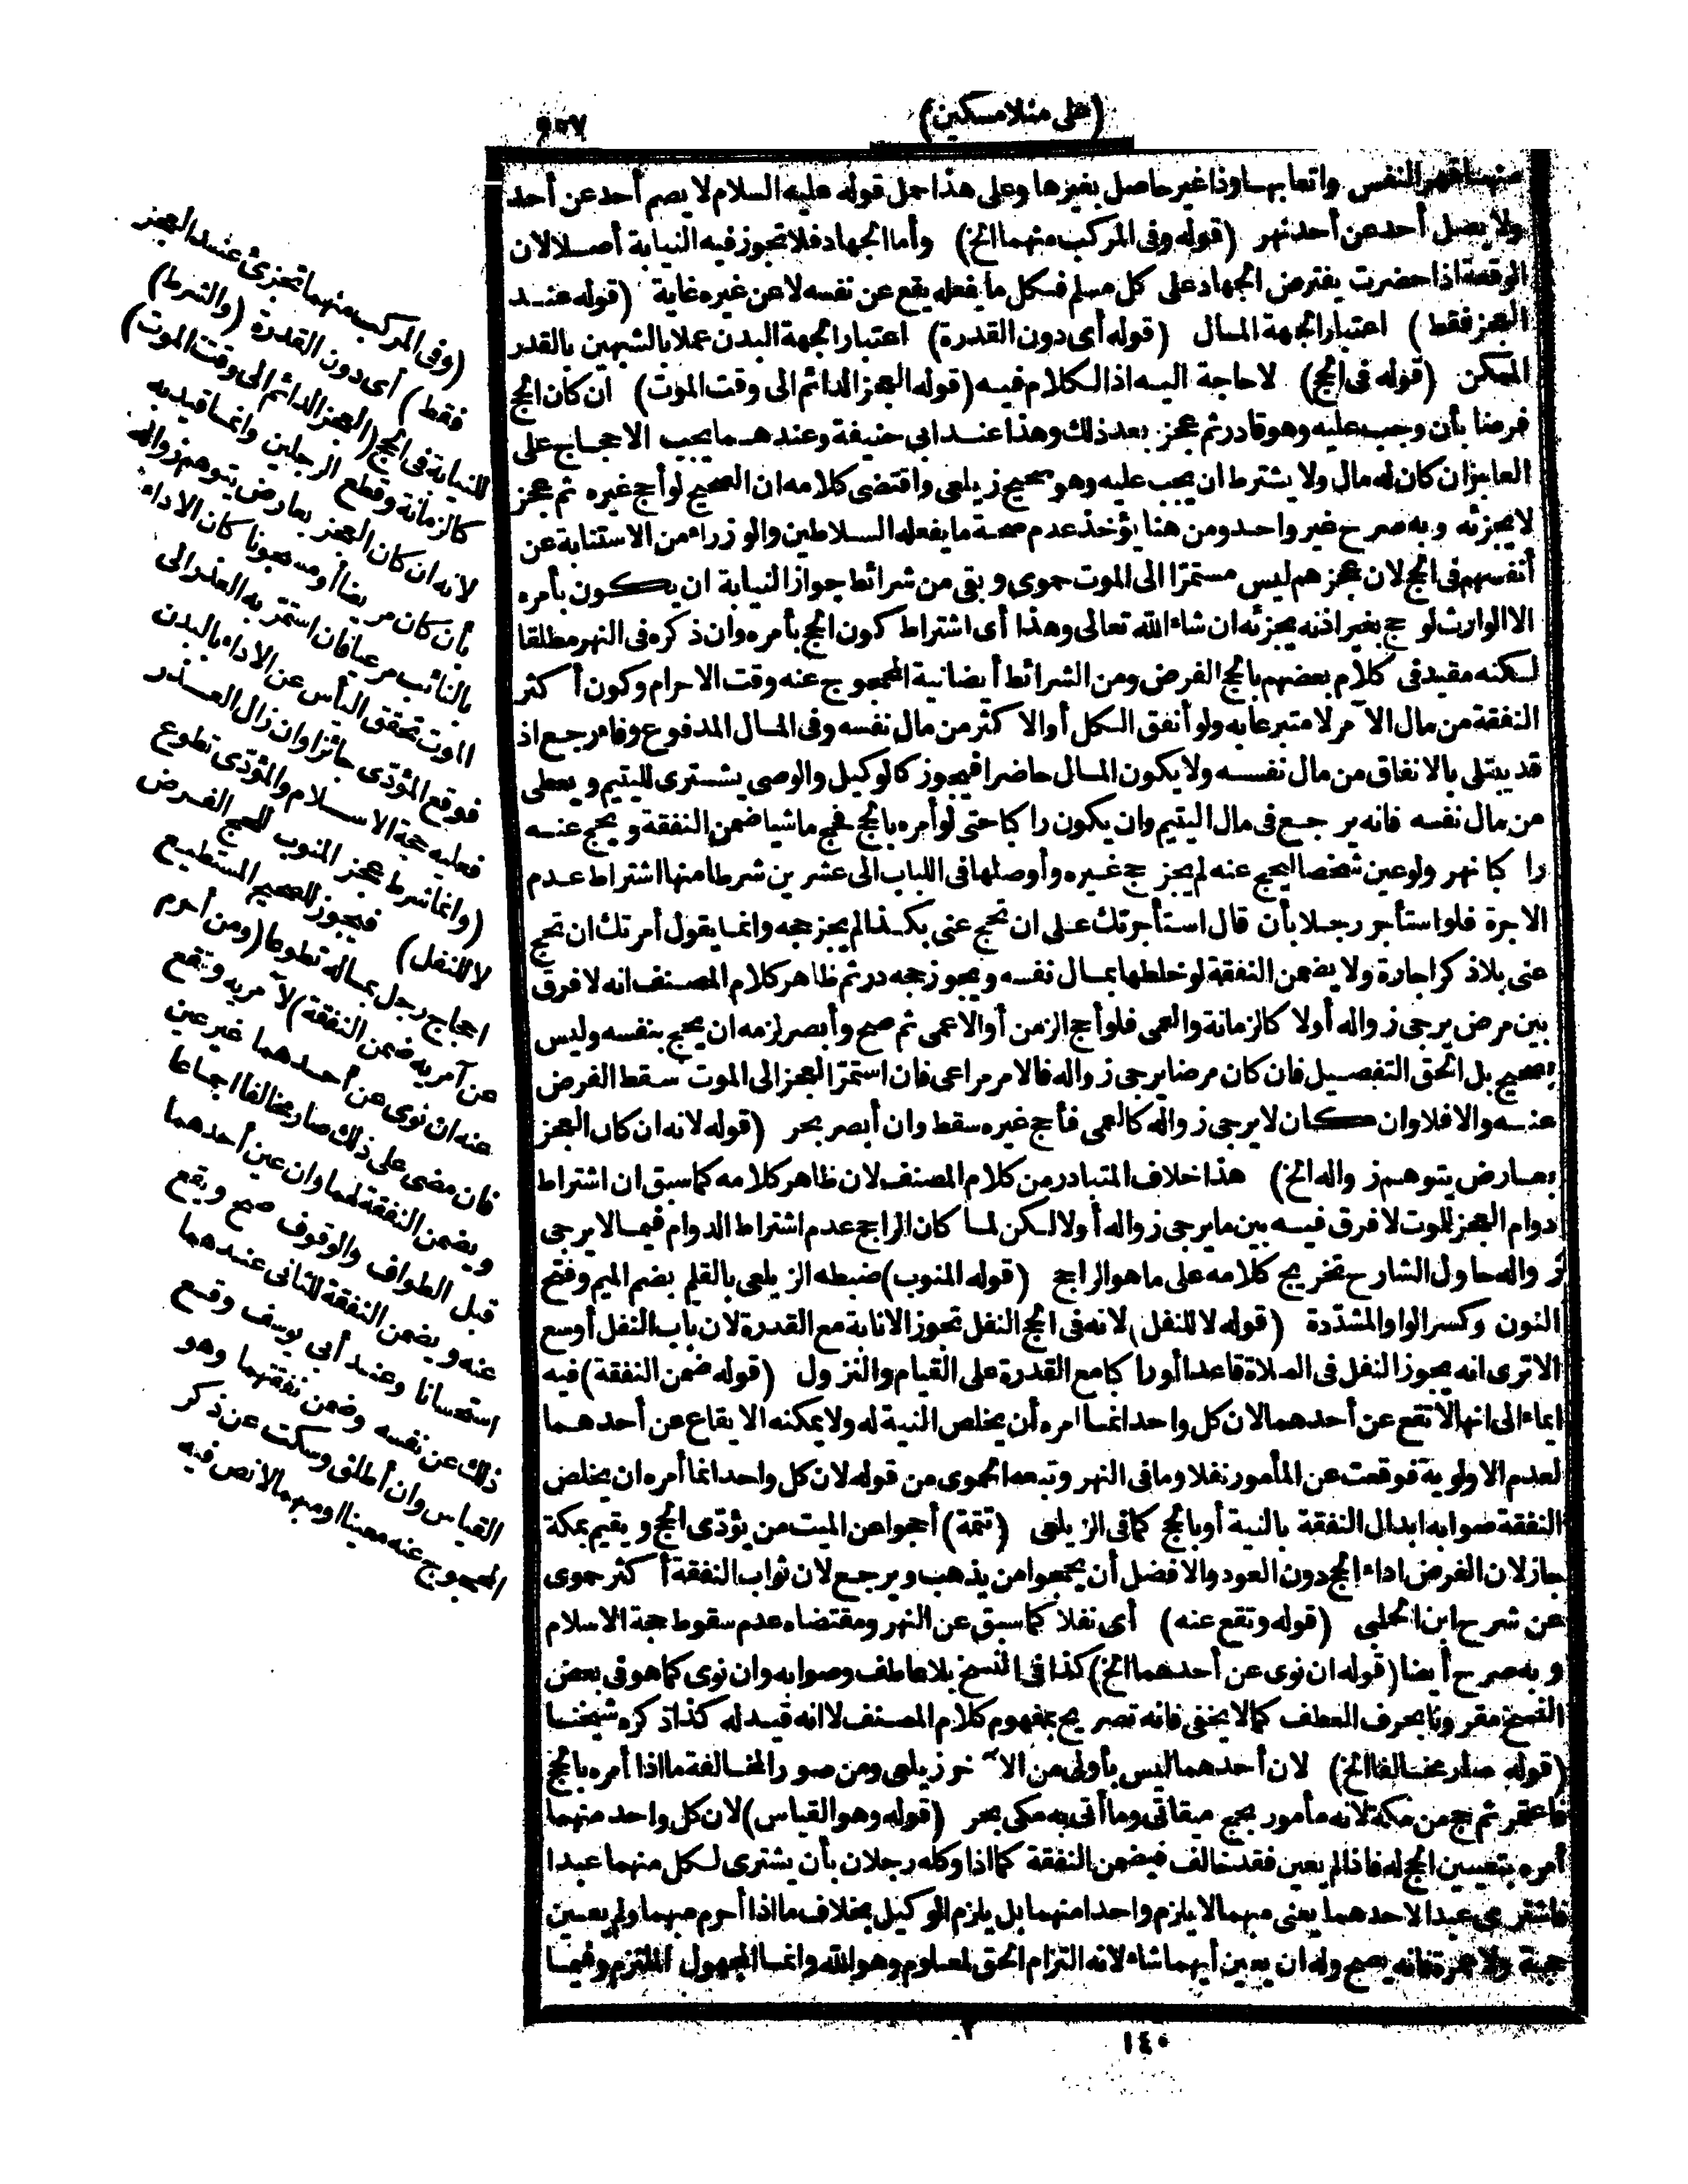 (على منلا مسكين)
منهما قهر النفس واتعابها وذا غير حاصل بغيرها وعلى هذا حمل قوله عليه السلام لا يصم أحد عن أحد
ولا يصل أحد عن أحد نهر (قوله وفى المركب منهما الخ) وأما الجهاد فلا تجوز فيه النيابة أصلا لان
الوقعة اذا حضرت يفترض الجهاد على كل مسلم فكل ما يفعله يقع عن نفسه لا عن غيره غاية (قوله عند
العجز فقط) اعتبارا لجهة المال (قوله أى دون القدرة) اعتبارا لجهة البدن عملا بالشبهين بالقدر
الممكن (قوله فى الحج) لا حاجة اليه اذ الكلام فيه (قوله العجز الدائم الى وقت الموت) ان كان الحج
فرضا بأن وجب عليه وهو قادر ثم عجز بعد ذلك وهذا عند ابى حنيفة وعندهما يجب الاحجاج على
العاجز ان كان له مال ولا يشترط ان يجب عليه وهو صحيح زيلعى واقتضى كلامه ان الصحيح لو أحج غيره ثم عجز
لا يجزئه وبه صرح غير واحد ومن هنا يؤخذ عدم صحة ما يفعله السلاطين والوزراء من الاستنابة عن
أنفسهم فى الحج لان عجزهم ليس مستمرّا الى الموت حموى وبقى من شرائط جواز النيابة ان يكون بأمره
الا الوارث لو حج بغير اذنه يجزئه ان شاء الله تعالى وهذا أى اشتراط كون الحج بأمره وان ذكره فى النهر مطلقا
لكنه مقيد فى كلام بعضهم بالحج الفرض ومن الشرائط أيضا نية المحجوج عنه وقت الاحرام وكون أكثر
النفقة من مال الآمر لا متبرعا به ولو أنفق الكل أو الاكثر من مال نفسه وفى المال المدفوع وفاء رجع اذ
قد يبتلى بالانفاق من مال نفسه ولا يكون المال حاضرا فيجوز كالوكيل والوصى يشترى لليتيم ويعطى
من مال نفسه فانه يرجع فى مال اليتيم وان يكون راكبا حتى لو أمره بالحج فحج ماشيا ضمن النفقة ويحج عنه
راكبا نهر ولو عين شخصا ليحج عنه لم يجز حج غيره وأوصلها فى اللباب الى عشرين شرطا منها اشتراط عدم
الاجرة فلو استأجر رجلا بأن قال استأجرتك على ان تحج عنى بكذا لم يجز حجه وانما يقول أمرتك ان تحج
عنى بلا ذكر اجارة ولا يضمن النفقة لو خلطها بمال نفسه ويجوز حجه در ثم ظاهر كلام المصنف انه لا فرق
بين مرض يرجى زواله أولا كالزمانة والعمى فلو أحج الزمن أو الاعمى ثم صح وأبصر لزمه ان يحج بنفسه وليس
بصحيح بل الحق التفصيل فان كان مرضا يرجى زواله فالامر مراعى فان استمرّ العجز الى الموت سقط الفرض
عنه والا فلا وان كان لا يرجى زواله كالعمى فأحج غيره سقط وان أبصر بحر (قوله لانه ان كان العجز
بعارض يتوهم زواله الخ) هذا خلاف المتبادر من كلام المصنف لان ظاهر كلامه كما سبق ان اشتراط
دوام العجز للموت لا فرق فيه بين ما يرجى زواله أولا لكن لما كان الراجح عدم اشتراط الدوام فيما لا يرجى
زواله حاول الشارح تخريج كلامه على ما هو الراجح (قوله المنوب) ضبطه الزيلعى بالقلم بضم الميم وفتح
النون وكسر الواو المشدّدة (قوله لا للنفل) لانه فى الحج النفل تجوز الانابة مع القدرة لان باب النفل أوسع
الا ترى انه يجوز النفل فى الصلاة قاعدا أو راكبا مع القدرة على القيام والنزول (قوله ضمن النفقة) فيه
ايماء الى انها لا تقع عن أحدهما لان كل واحد انما امره أن يخلص النية له ولا يمكنه الايقاع عن أحدهما
لعدم الاولوية فوقعت عن المأمور نفلا وما فى النهر وتبعه الحموى من قوله لان كل واحد انما أمره ان يخلص
النفقة صوابه ابدال النفقة بالنية أو بالحج كما فى الزيلعى (تتمة) أحجوا عن الميت من يؤدّى الحج ويقيم بمكة
جاز لان الفرض اداء الحج دون العود والافضل أن يحجوا من يذهب ويرجع لان ثواب النفقة أكثر حموى
عن شرح ابن الحلبى (قوله وتقع عنه) أى نفلا كما سبق عن النهر ومقتضاه عدم سقوط حجة الاسلام
وبه صرح أيضا (قوله ان نوى عن أحدهما الخ) كذا فى النسخ بلا عاطف وصوابه وان نوى كما هو فى بعض
النسخ مقرونا بحرف العطف كما لا يخفى فانه تصريح بمفهوم كلام المصنف لا انه قيد له كذا ذكره شيخنا
(قوله صار مخالفا الخ) لان أحدهما ليس بأولى من الآخر زيلعى ومن صور المخالفة ما اذا أمره بالحج
فاعتمر ثم حج من مكة لانه مأمور بحج ميقاتى وما أتى به مكى بحر (قوله وهو القياس) لان كل واحد منهما
أمره بتعيين الحج له فاذا لم يعين فقد خالف فيضمن النفقة كما اذا وكله رجلان بأن يشترى لكل منهما عبدا
فاشترى عبدا لاحدهما يعنى مبهما لا يلزم واحدا منهما بل يلزم الوكيل بخلاف ما اذا أحرم مبهما ولم يعين
حجة ولا عمرة فانه يصح وله ان يعين أيهما شاء لانه التزام الحق لمعلوم وهو الله وانما المجهول الملتزم وفيما
١٤٠
(وفى المركب منهما تجزئ عند العجز
فقط) أى دون القدرة (والشرط)
للنيابة فى الحج (العجز الدائم الى وقت الموت)
كالزمانة وقطع الرجلين وانما قيد به
لانه ان كان العجز بعارض يتوهم زواله
بأن كان مريضا أو مسجونا كان الاداء
بالنائب مرعيا فان استمرّ به العذر الى
الموت تحقق اليأس عن الاداء بالبدن
فوقع المؤدّى جائزا وان زال العذر
فعليه حجة الاسلام والمؤدّى تطوع
(وانما شرط عجز المنوب للحج الفرض
لا للنفل) فيجوز للصحيح المستطيع
احجاج رجل بماله تطوعا (ومن أحرم
عن آمريه ضمن النفقة) لآمريه وتقع
عنه ان نوى عن أحدهما غير عين
فان مضى على ذلك صار مخالفا اجماعا
ويضمن النفقة لهما وان عين أحدهما
قبل الطواف والوقوف صح ويقع
عنه ويضمن النفقة للثانى عندهما
استحسانا وعند أبى يوسف وقع
ذلك عن نفسه وضمن نفقتهما وهو
القياس وان أطلق وسكت عن ذكر
المحجوج عنه معينا او مبهما لا نص فيه